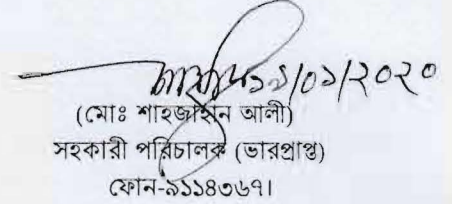 ১৯/০১/২০২০
(মোঃ শাহজাহান আলী)
সহকারী পরিচালক (ভারপ্রাপ্ত)
ফোন-৯১১৪৩৬৭।